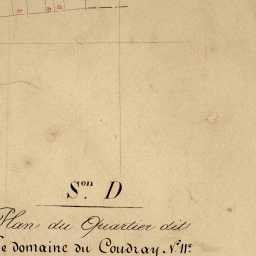 S.on D
Plan du Quartier dit
e domaine du Coudray N.º 11.